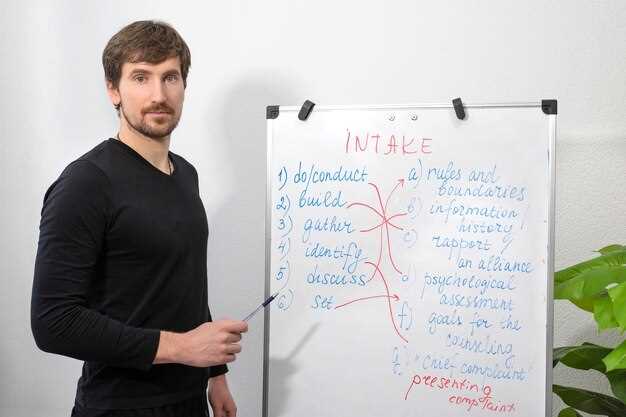 INTAKE
1) do/conduct
2) build
3) gather
4) identify
5) discuss
6) set
a) rules and
boundaries
b) information/
history
c) rapport/
an alliance
d) psychological
assessment
f) goals for the
counseling
"Chief complaint"
presenting
complaint